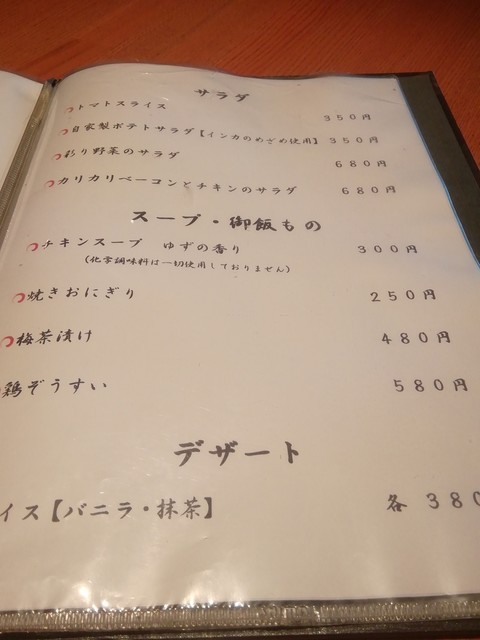 サラダ
トマトスライス 350円
自家製ポテトサラダ【インカのめざめ使用】 350円
彩り野菜のサラダ 680円
カリカリベーコンとチキンのサラダ 680円
スープ・御飯もの
チキンスープ ゆずの香り 300円
(化学調味料は一切使用しておりません)
焼きおにぎり 250円
梅茶漬け 480円
鶏ぞうすい 580円
デザート
イス【バニラ・抹茶】 各 380